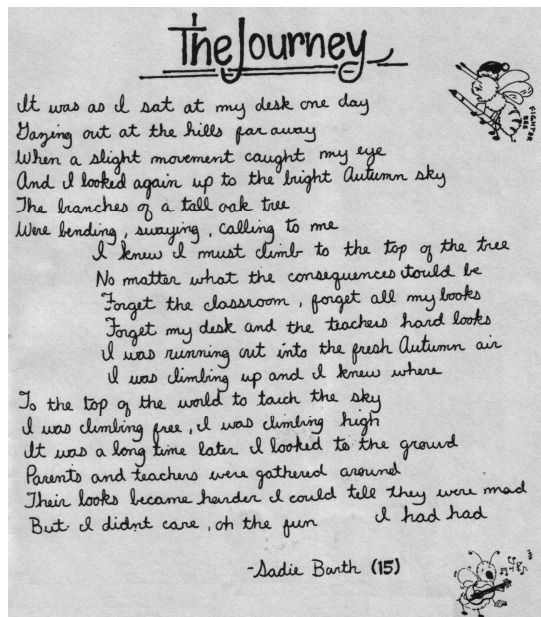 The Journey
It was as I sat at my desk one day
Gazing out at the hills far away
When a slight movement caught my eye
And I looked again up to the bright Autumn sky
The branches of a tall oak tree
Were bending, swaying, calling to me
I knew I must climb to the top of the tree
No matter what the consequences would be
Forget the classroom, forget all my books
Forget my desk and the teachers hard looks
I was running out into the fresh Autumn air
I was climbing up and I knew where
To the top of the world to touch the sky
I was climbing free, I was climbing high
It was a long time later I looked to the ground
Parents and teachers were gathered around
Their looks became harder I could tell they were mad
But I didnt care, oh the fun I had had
-Sadie Barth (15)
FIGHTER BEE